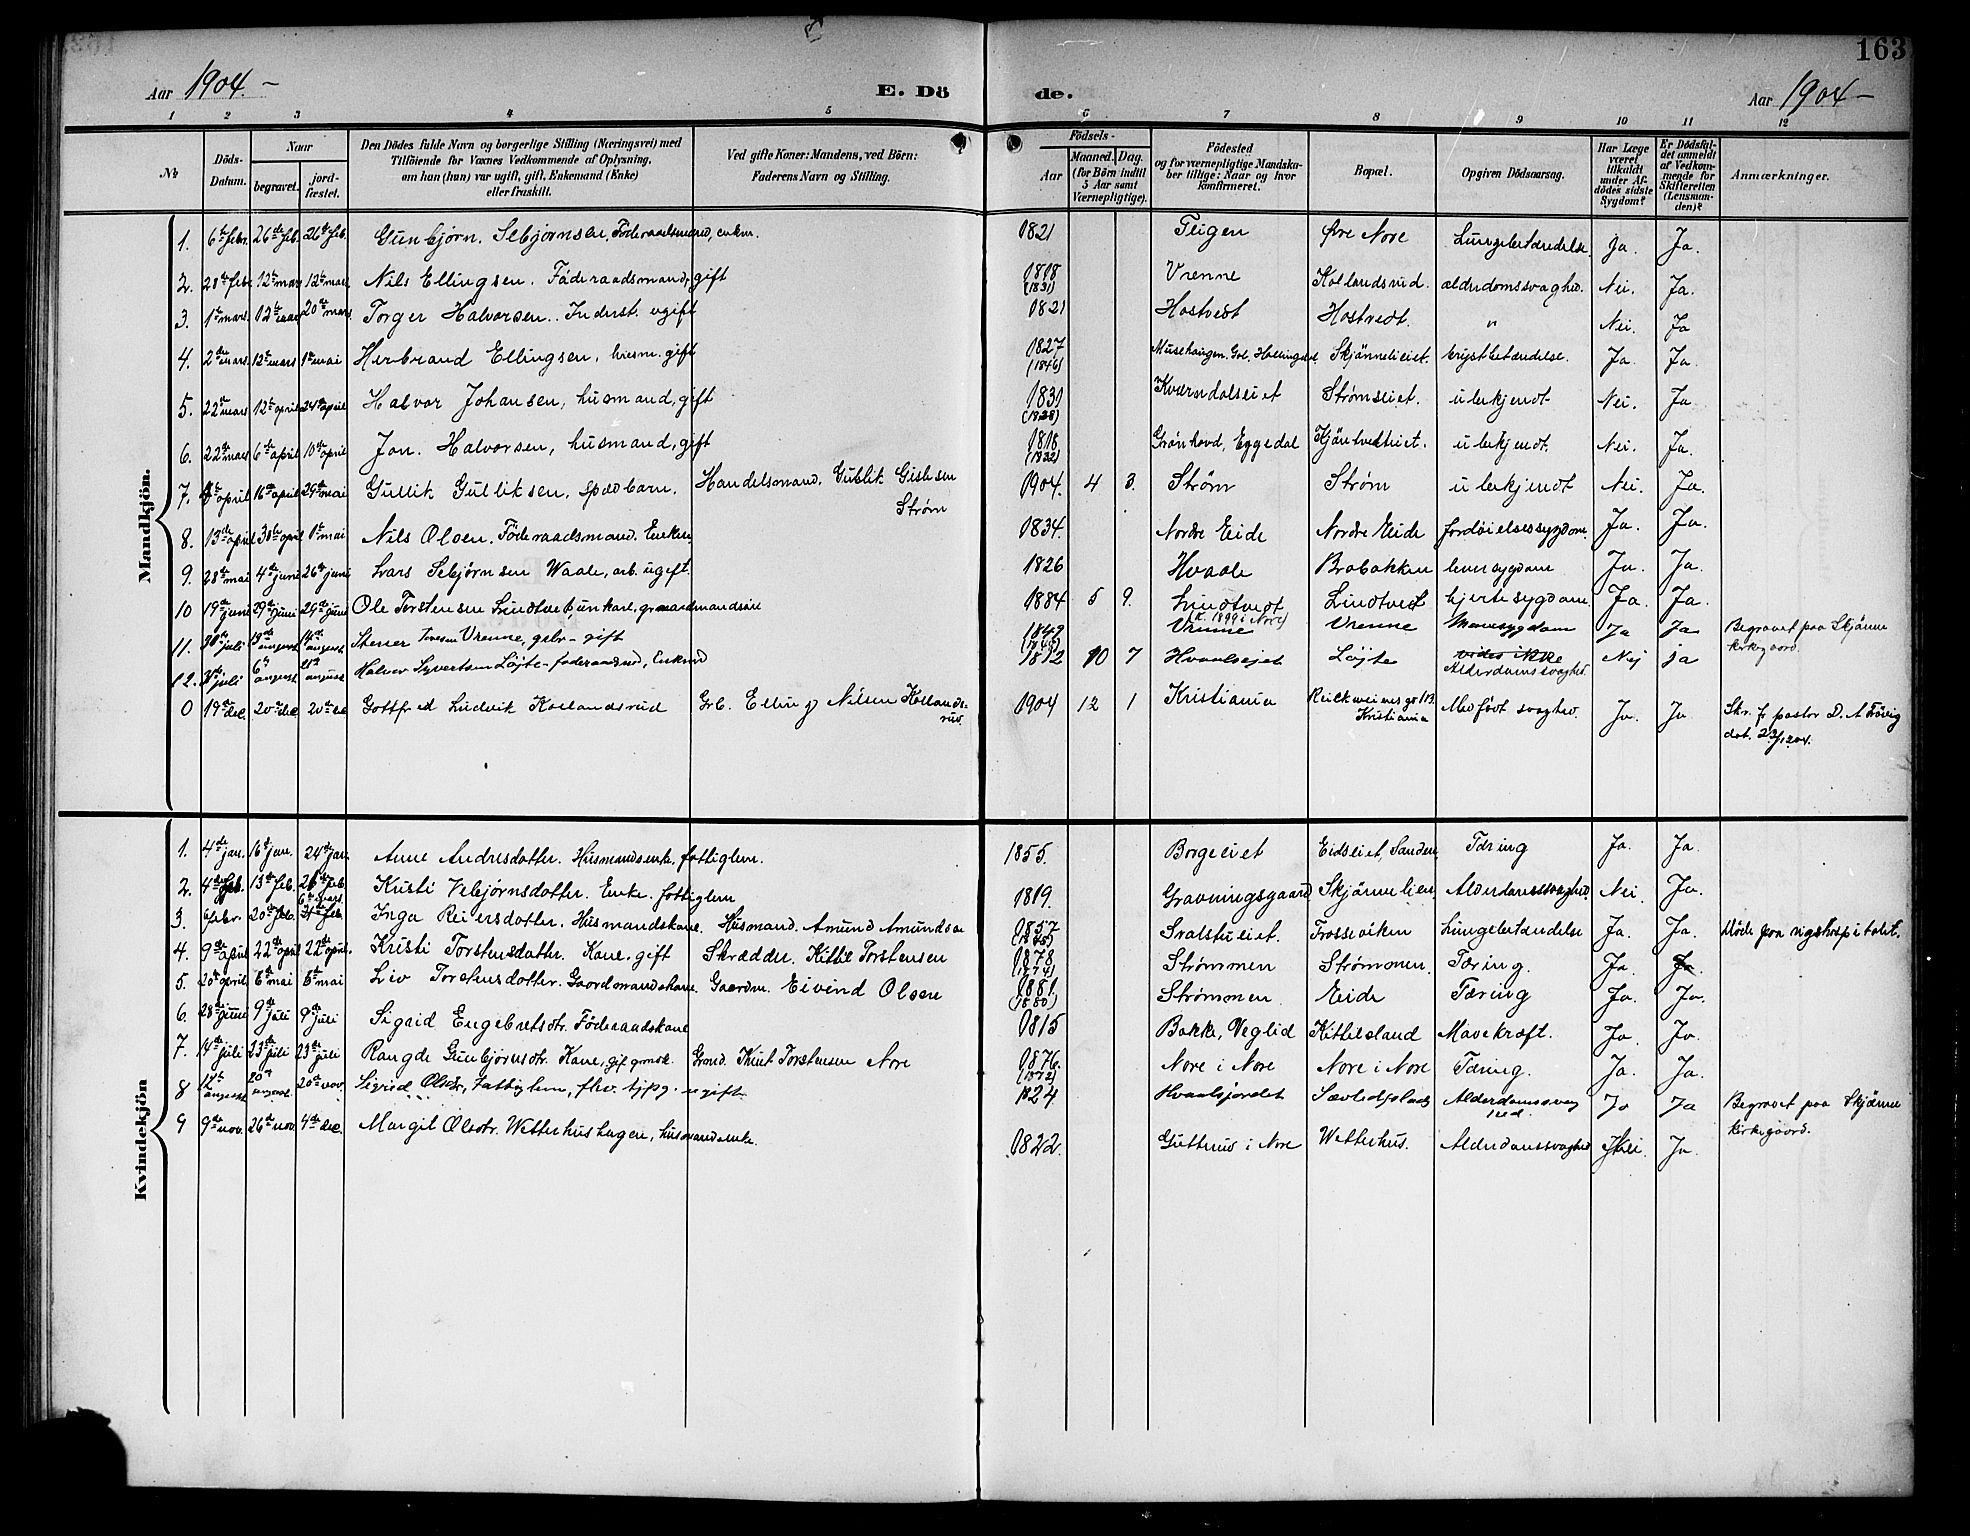 163
Aar 1904.–
E. Dö
de.
Aar 1904–
1 2 3 4 5 6 7 8 9 10 11 12
No
Döds-Datum.
Naar
begravet.
jord-fæstet.
Den Dödes fulde Navn og borgerlige Stilling (Næringsvei) med
Tilföiende for Voxnes Vedkommende af Oplysning,
om han (hun) var ugift, gift, Enkemand (Enke)
eller fraskilt.
Ved gifte Koner: Mandens, ved Börn:
Faderens Navn og Stilling.
Födsels-
Aar
Maaned. Dag.
(for Börn indtil
5 Aar samt
Værnepligtige).
Födested
og for værnepligtige Mandska-
ber tillige: Naar og hvor
konfirmeret.
Bopæl.
Opgiven Dödsaarsag.
Har Læge
været
tilkaldt
under Af-
dödes sidste
Sygdom?
Er Dödsfal-
det anmeldt
af Vedkom-
mende for
Skifteretten
(Lensman-
den)?
Anmærkninger.
Mandkjön.
1. 6te febr. 26de feb. 26de feb. Gunbjørn Sebjørnsen, Föderaadsmand, enkm. 1821 Teigen Øvre Nore Lungebetændelse. Ja. Ja.
2. 28de feb 12te mars 12te mars Nils Ellingsen. Föderaadsmand, gift 1818 (1831) Vrenne Kollandsrud. alderdomssvaghed. Nei. Ja.
3. 1ste mars. 12te mars 20de mars. Torger Halvorsen. Inderst. ugift 1821 Hostvedt Hostvedt. " Nei. Ja
4. 2den mars. 12te mars 1ste mai Herbrand Ellingsen, husm. gift 1827 (1846) Musehaugen, Gol, Hallingdal Skjønneeiet. brystbetændelse. Ja. Ja.
5. 22de mars 12te april 24de april Halvor Johansen, husmand, gift 1831 Kværndalseiet Strømseiet. ubekjendt. Nei. Ja
6. 22de mars 6te april 10de april Jon Halvorsen, husmand, gift 1818 (1832) Grønhovd, Eggedal ubekjendt. Nei. Ja.
7. april 16de april 29de mai Gullik Gulliksen, spædbarn. Handelsmand, Gullik Gislesen
Strøm
1904. 4 3. Strøm Strøm ubekjendt Nei. Ja.
8. 13de april 30te april 1ste mai Nils Olsen. Föderaadsmand. Enkem. 1834. Nordre Eide Nordre Eide fordøielsessygdom. Ja. Ja.
9. 28de mai 4de juni 26de juni Lars Sebjørnsen Waale, arb. ugift. 1826 Hvaale Brobakken leversygdom Ja. Ja.
10 19de juni 29de juni 29de juni Ole Torstensen Lindtvedt, ungkarl, grmandssön 1884 5 9. Lindtvedt
(k. 1899 i Nore)
Lindtvedt hjertesygdom Ja. Ja.
11. 30te juli 13de august 14de august Stener Iversen Vrenne, gbr – gift 1849 Vrenne Vrenne Mavesygdom Ja Ja Begravet paa Skjønne
kirkegaard.
12. juli 6te august 21de august Halvor Syvertsen Løjte – føderaadsmd, Enkmd 1812 10 7 Hvaalsejet Løjte vides ikke
Alderdomssvaghed.
Nej ja
0 19de dec. 20de dec 20de dec Gottfred Ludvik Kollandsrud Grb. Elling Nilsen Kollands-
rud.
1904 12 1 Kristiania 113. Kristiania Medfødt svaghed. Ja. Ja Skr. fr pastor D. A Frövig
dat. 23/12 04.
Kvindekjön
1. 4de jan. 16de jan. 24de jan. Anne Andresdotter. Husmandsenke, fattiglem. 1855. Borgeeiet Eidseiet, Sanden Tæring Ja. Ja.
2. 4de feb. 13de feb. 28de feb. Kristi Vebjørnsdotter. Enke. fattiglem 1819. Gravningsgaard Skjønnelien Alderdomssvaghed. Nei. Ja.
6te mars.
3. febr. 20de feb. 21de feb. Inga Reiersdotter. Husmandskone. Husmand. Amund Amundsen 1857 Svalstueiet. Frosseviken Lungebetændelse Ja. Ja. Døde paa rigshospitalet.
4. 9de april 22de april 22de april. Kristi Torstensdotter. Kone. gift Skrædder. Kittil Torstensen 1878 (1874) Strømmen Strømmen. Tæring. Ja Ja.
5. 20de april 6te mai 6te mai Liv Torstensdotter. Gaardmandskone. Gaardm. Eivind Olsen 1881. (1880) Strømmen. Eide Tæring Ja. Ja.
6. 28de juni 9de juli 9de juli Sigrid Engebretsdtr. Föderaadskone 1815 Bakke, Veglid Kittilsland Mavekræft. Ja. Ja.
7. 14de juli 23de juli 23de juli Rangde Gunbjørnsdtr. Kone, gift Grmd. Knut Torstensen Nore 1876. (1872) Nore i Nore Nore i Nore Tæring. Ja. Ja.
8 12te august 20de august 20de nov. Sigrid Olsdtr, Fattiglem, fhv. tjpg. ugift 1824. Hvaalsjordet Alderdomssvag
hed.
Ja Ja Begravet paa Skjønne
kirkegaard.
9 9de nov. 26de nov 4de dec. Margit Olsdtr. Wetterhushagen, husmandsenke. 1822. Gutterud i Nore Wetterhus. Alderdomssvaghed Nei. Ja.